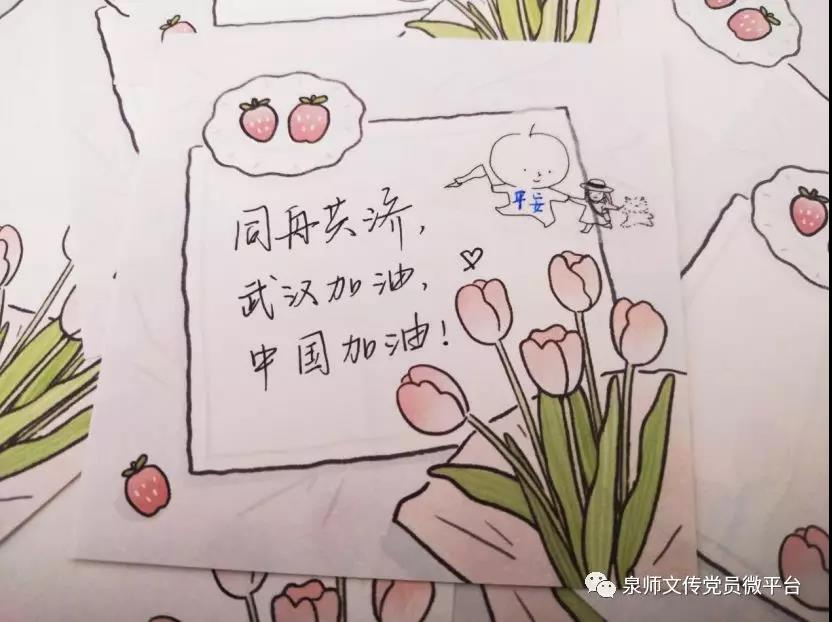 平安
同舟共济,
武汉加油,
中国加油!
泉师文传党员微平台